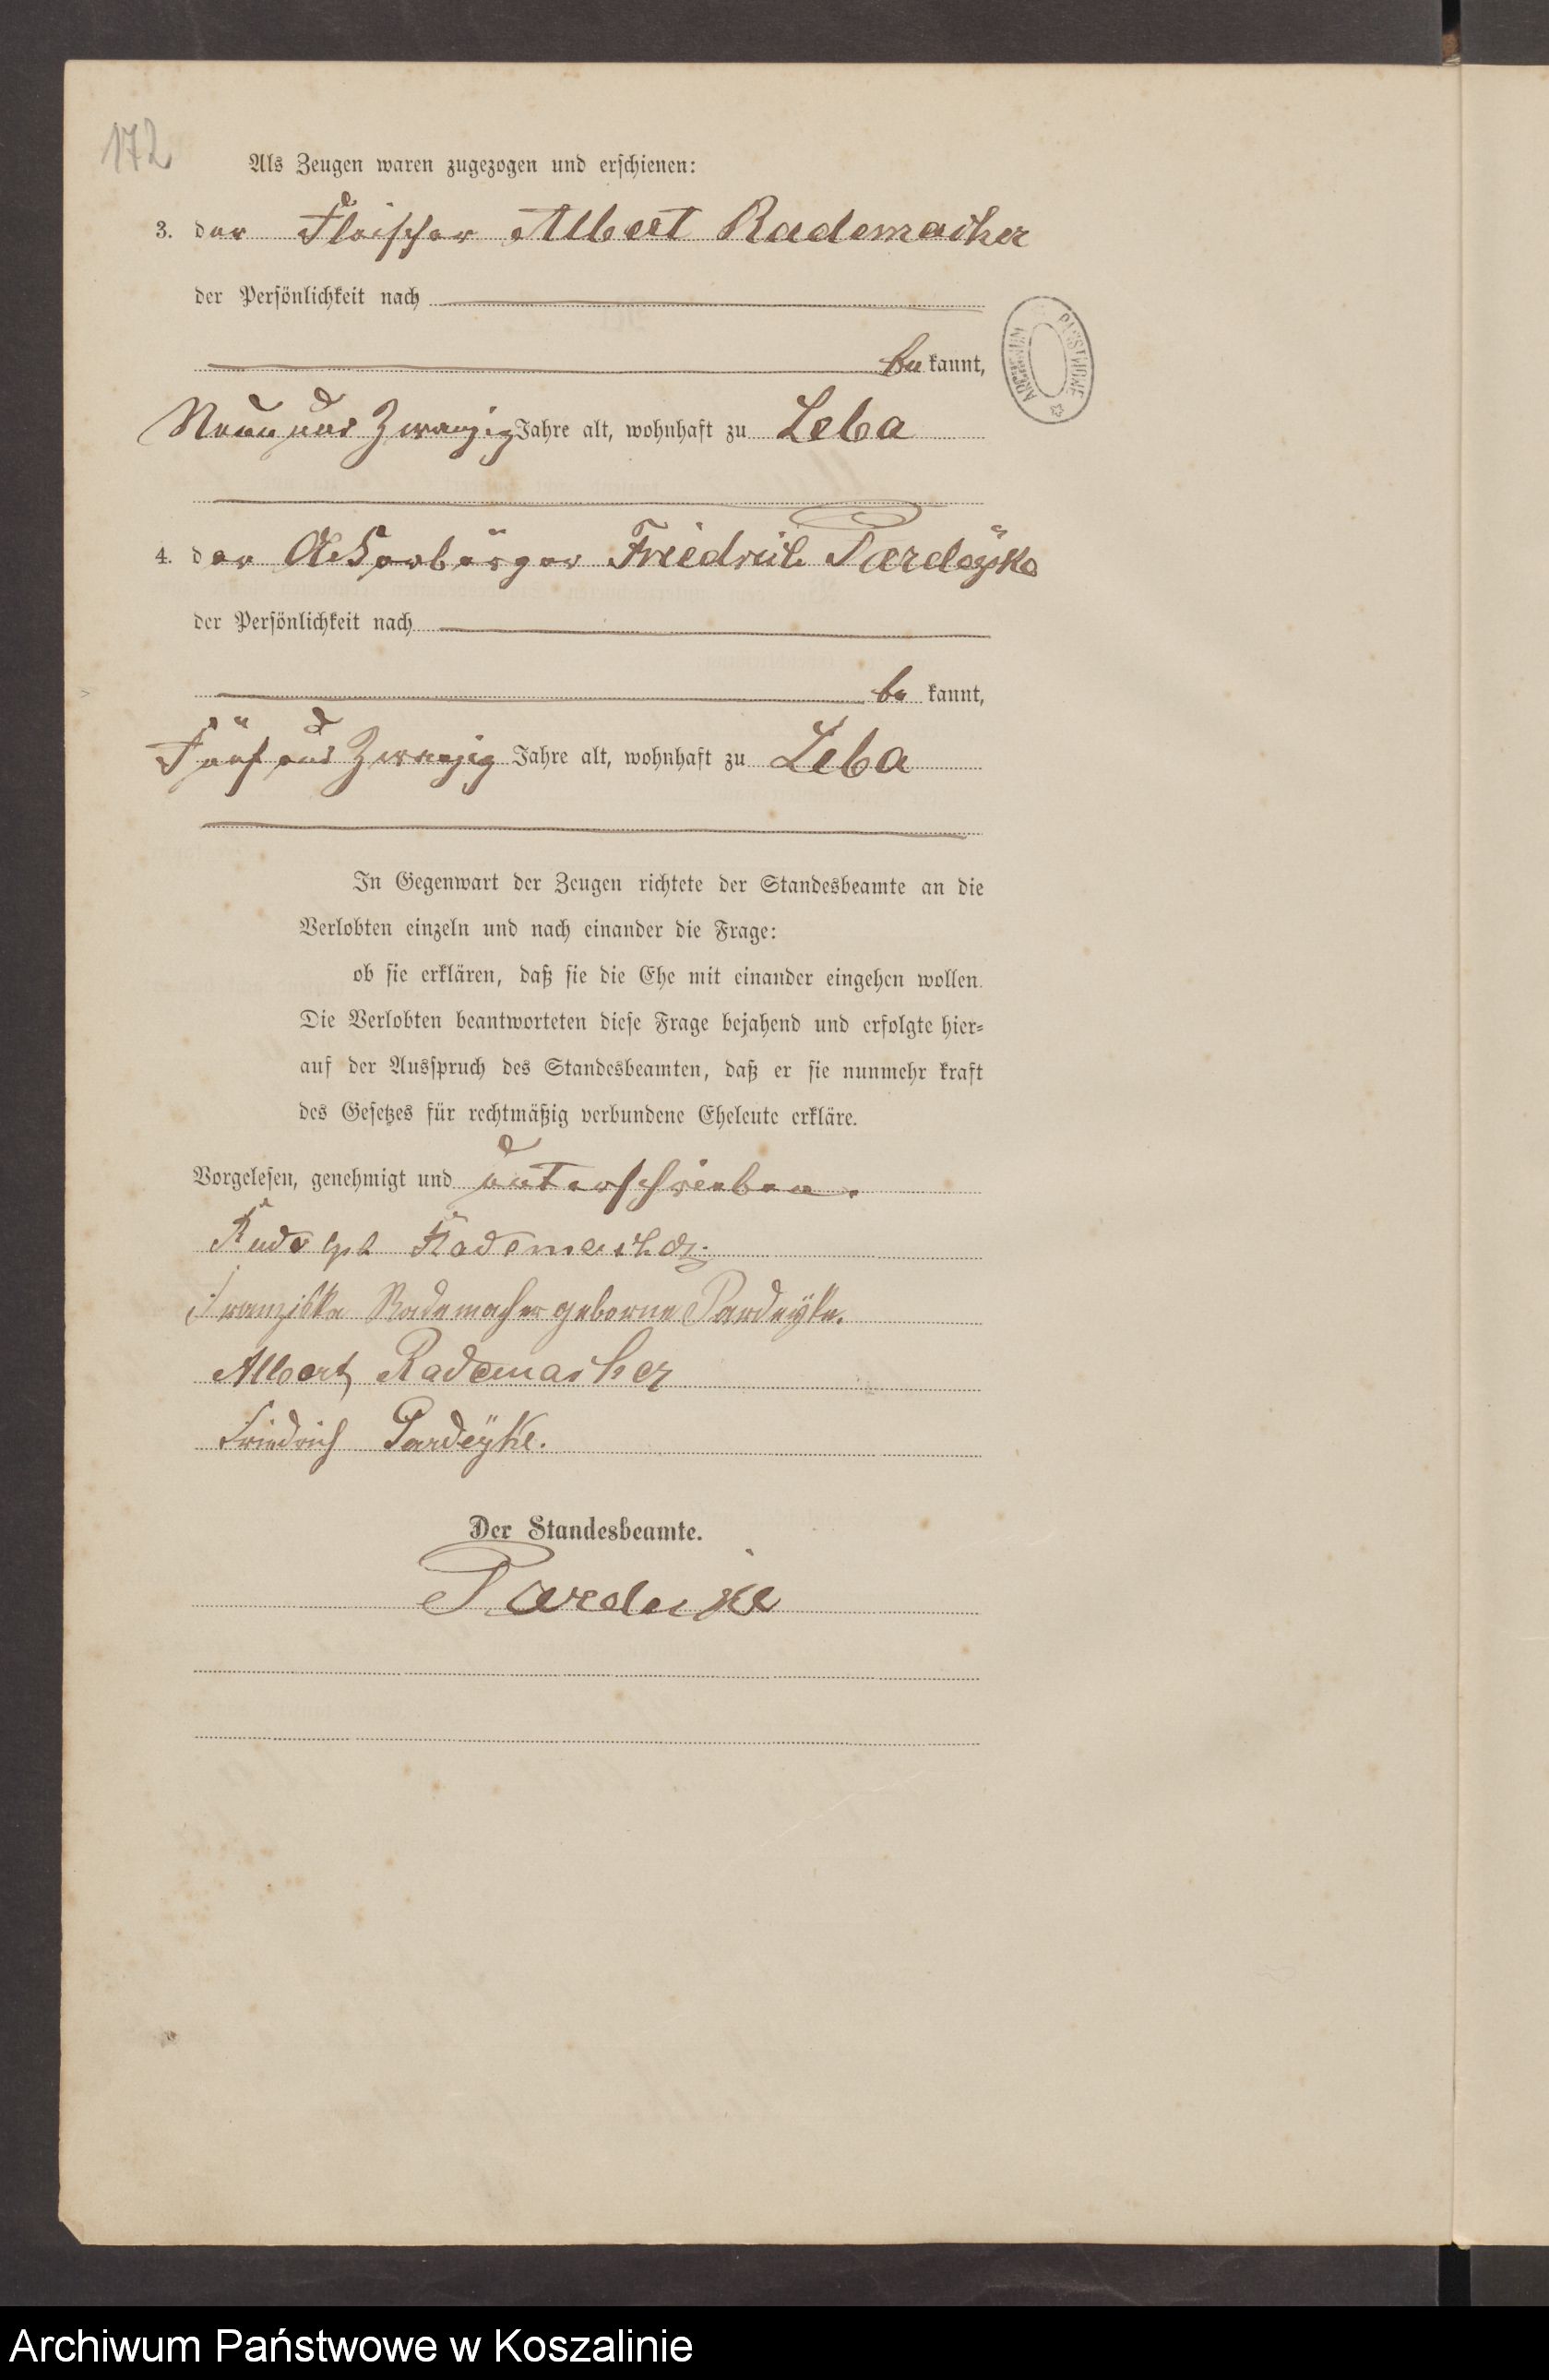 172
Als Zeugen waren zugezogen und erschienen:
3. der Fleischer Albert Rademacher
der Persönlichkeit nach
be kannt,
Neun und Zwanzig Jahre alt, wohnhaft zu Leba
4. der Ackerbürger Friedrich Pardeÿke
der Persönlichkeit nach
be kannt,
Fünf und Zwanzig Jahre alt, wohnhaft zu Leba
In Gegenwart der Zeugen richtete der Standesbeamte an die
Verlobten einzeln und nach einander die Frage:
ob sie erklären, daß sie die Ehe mit einander eingehen wollen.
Die Verlobten beantworteten diese Frage bejahend und erfolgte hier=
auf der Ausspruch des Standesbeamten, daß er sie nunmehr kraft
des Gesetzes für rechtmäßig verbundene Eheleute erkläre.
Vorgelesen, genehmigt und unterschrieben.
Rudolph Rademacher.
Franziska Rademacher geborne Pardeÿke.
Albert Rademacher
Friedrich Pardeÿke.
Der Standesbeamte.
Pardeike
ARCHIWUM PAŃSTWOWE
Archiwum Państwowe w Koszalinie